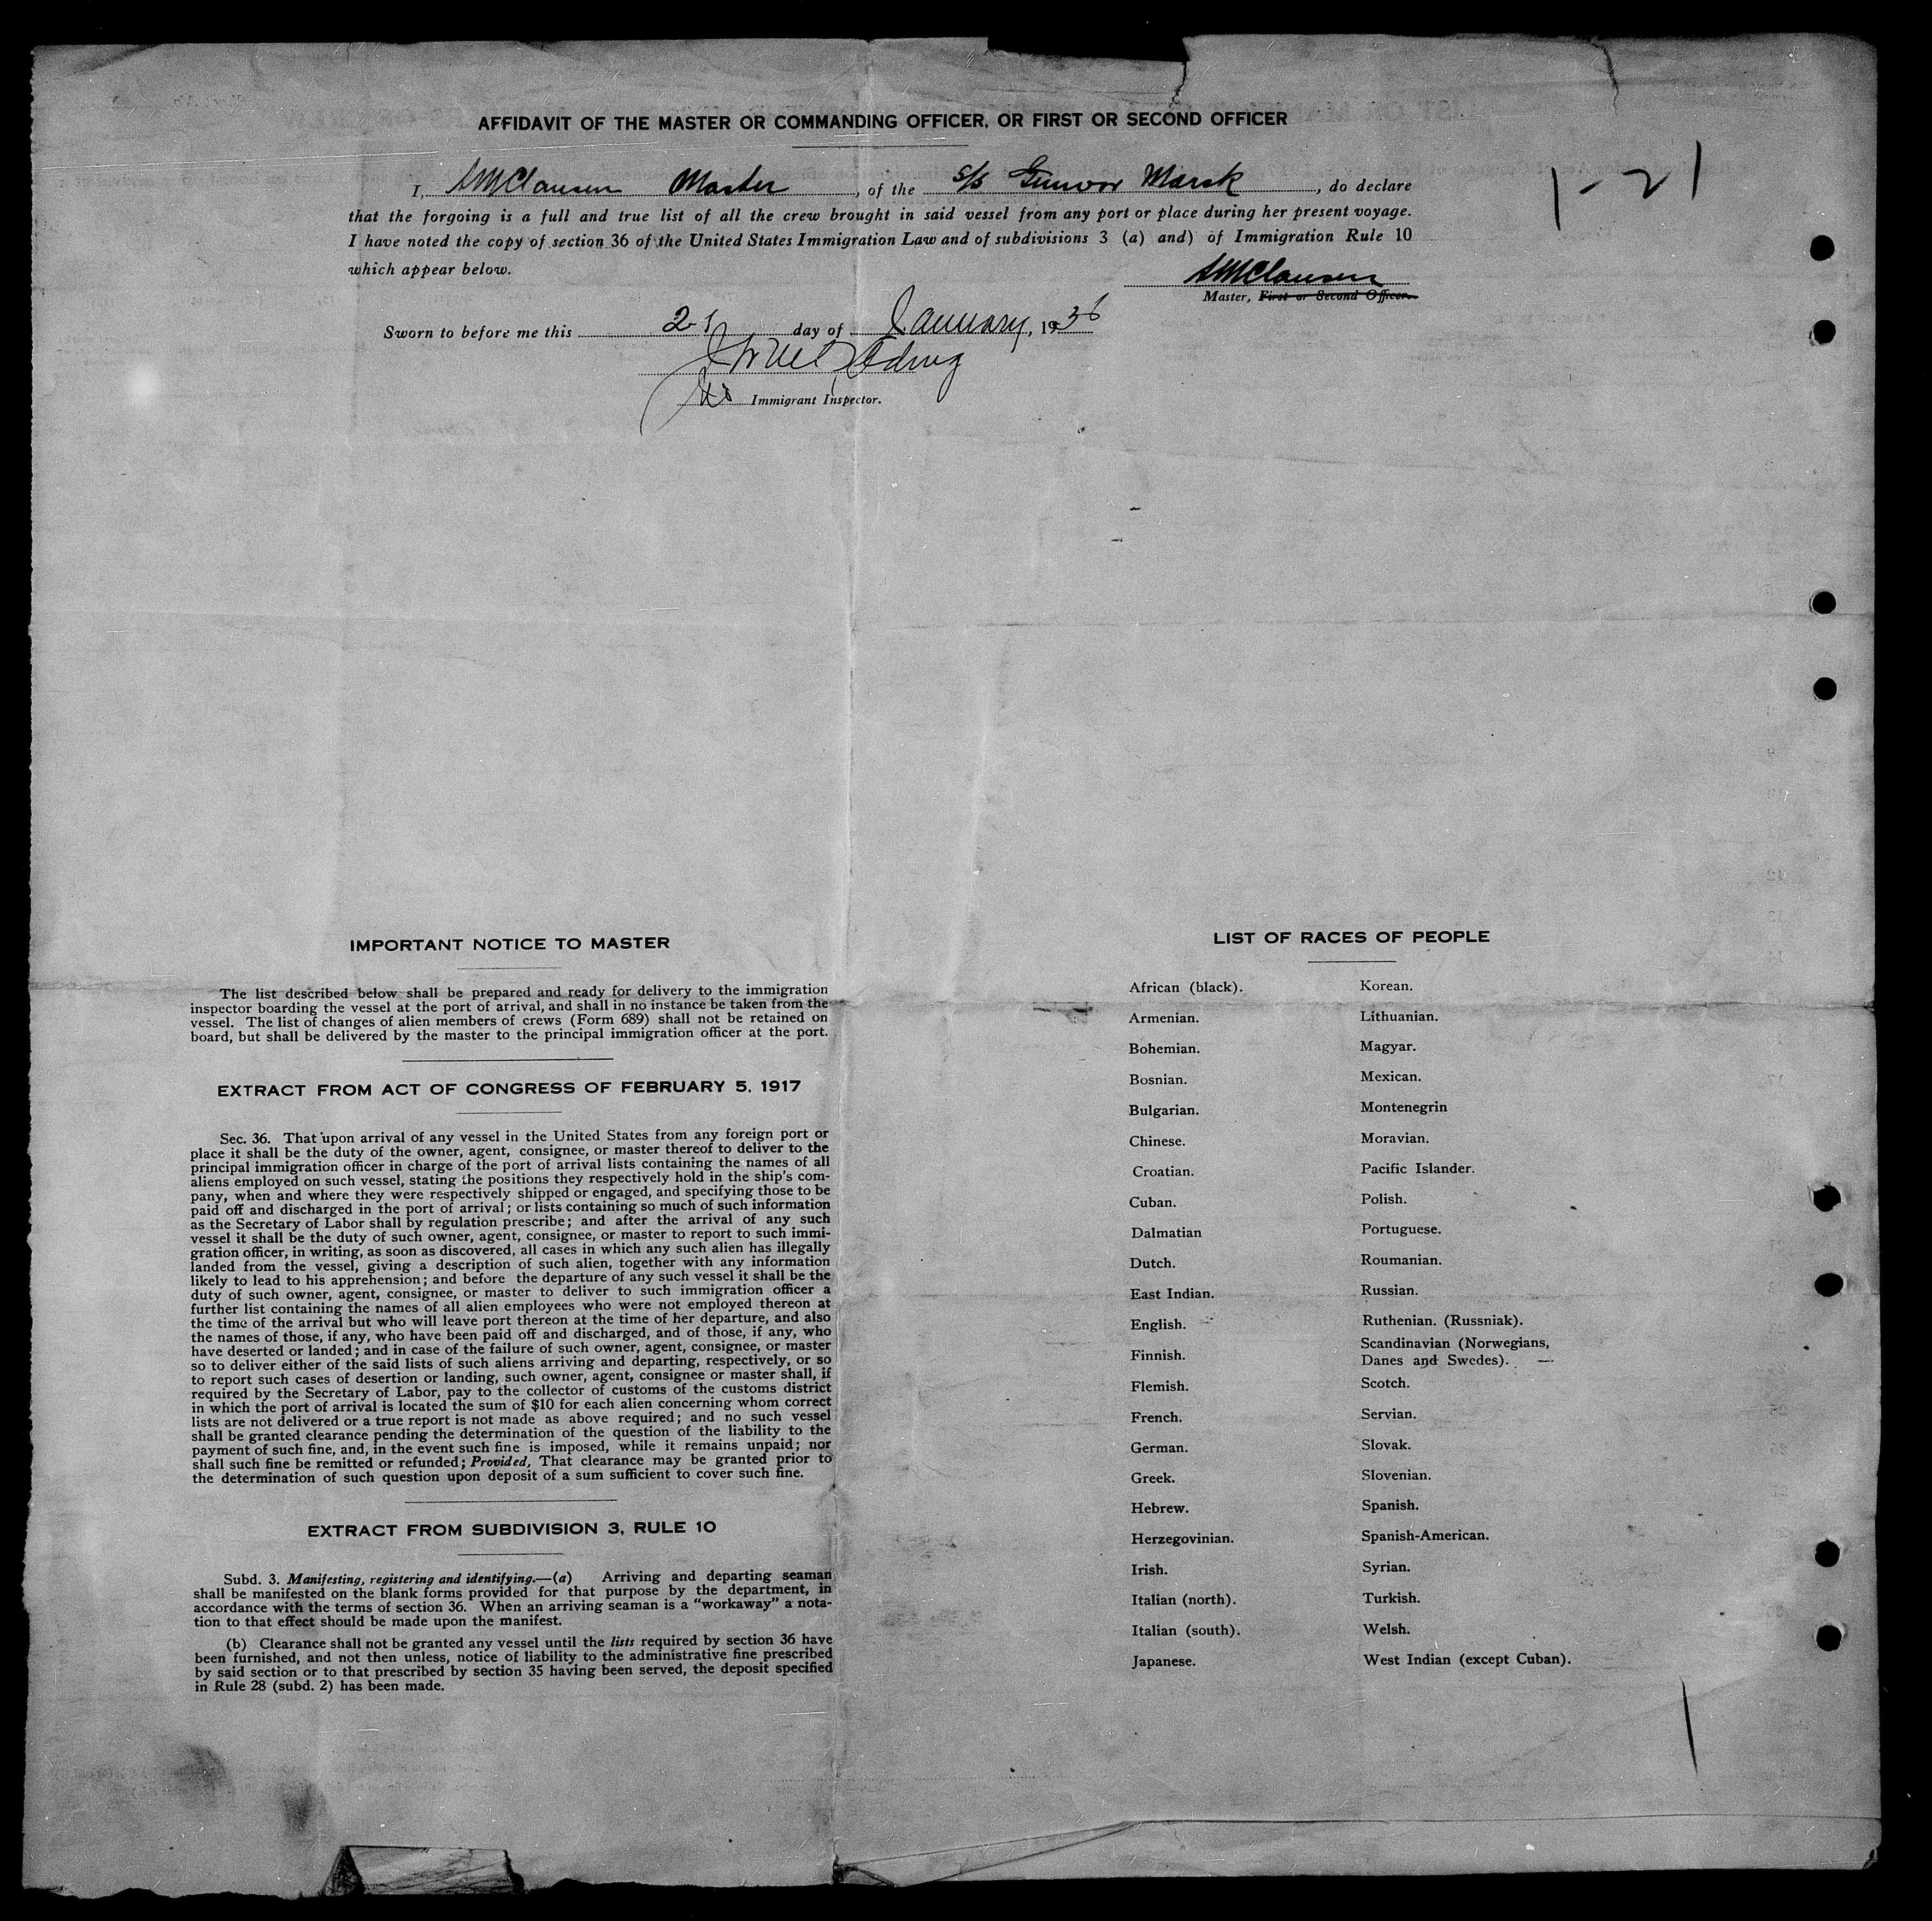 AFFIDAVIT OF THE MASTER OR COMMANDING OFFICER, OR FIRST OR SECOND OFFICER
1-21
I, AMClausen Master, of the S/S Gunvor Mærsk, do declare
that the forgoing is a full and true list of all the crew brought in said vessel from any port or place during her present voyage.
I have noted the copy of section 36 of the United States Immigration Law and of subdivisions 3 (a) and) of Immigration Rule 10
which appear below.
AMClausen
Master, First or Second Officer.
Sworn to before me this 21 day of January, 1936
Immigrant Inspector.
IMPORTANT NOTICE TO MASTER
The list described below shall be prepared and ready for delivery to the immigration
inspector boarding the vessel at the port of arrival, and shall in no instance be taken from the
vessel. The list of changes of alien members of crews (Form 689) shall not be retained on
board, but shall be delivered by the master to the principal immigration officer at the port.
EXTRACT FROM ACT OF CONGRESS OF FEBRUARY 5, 1917
Sec. 36. That upon arrival of any vessel in the United States from any foreign port or
place it shall be the duty of the owner, agent, consignee, or master thereof to deliver to the
principal immigration officer in charge of the port of arrival lists containing the names of all
aliens employed on such vessel, stating the positions they respectively hold in the ship's com-
pany, when and where they were respectively shipped or engaged, and specifying those to be
paid off and discharged in the port of arrival; or lists containing so much of such information
as the Secretary of Labor shall by regulation prescribe; and after the arrival of any such
vessel it shall be the duty of such owner, agent, consignee, or master to report to such immi-
gration officer, in writing, as soon as discovered, all cases in which any such alien has illegally
landed from the vessel, giving a description of such alien, together with any information
likely to lead to his apprehension; and before the departure of any such vessel it shall be the
duty of such owner, agent, consignee, or master to deliver to such immigration officer a
further list containing the names of all alien employees who were not employed thereon at
the time of the arrival but who will leave port thereon at the time of her departure, and also
the names of those, if any, who have been paid off and discharged, and of those, if any, who
have deserted or landed; and in case of the failure of such owner, agent, consignee, or master
so to deliver either of the said lists of such aliens arriving and departing, respectively, or so
to report such cases of desertion or landing, such owner, agent, consignee or master shall, if
required by the Secretary of Labor, pay to the collector of customs of the customs district
in which the port of arrival is located the sum of $10 for each alien concerning whom correct
lists are not delivered or a true report is not made as above required; and no such vessel
shall be granted clearance pending the determination of the question of the liability to the
payment of such fine, and, in the event such fine is imposed, while it remains unpaid; nor
shall such fine be remitted or refunded; Provided, That clearance may be granted prior to
the determination of such question upon deposit of a sum sufficient to cover such fine.
EXTRACT FROM SUBDIVISION 3, RULE 10
Subd. 3. Manifesting, registering and identifying.—(a) Arriving and departing seaman
shall be manifested on the blank forms provided for that purpose by the department, in
accordance with the terms of section 36. When an arriving seaman is a "workaway" a nota-
tion to that effect should be made upon the manifest.
(b) Clearance shall not be granted any vessel until the lists required by section 36 have
been furnished, and not then unless, notice of liability to the administrative fine prescribed
by said section or to that prescribed by section 35 having been served, the deposit specified
in Rule 28 (subd. 2) has been made.
LIST OF RACES OF PEOPLE
African (black).
Armenian.
Bohemian.
Bosnian.
Bulgarian.
Chinese.
Croatian.
Cuban.
Dalmatian
Dutch.
East Indian.
English.
Finnish.
Flemish.
French.
German.
Greek.
Hebrew.
Herzegovinian.
Irish.
Italian (north).
Italian (south).
Japanese.
Korean.
Lithuanian.
Magyar.
Mexican.
Montenegrin
Moravian.
Pacific Islander.
Polish.
Portuguese.
Roumanian.
Russian.
Ruthenian. (Russniak).
Scandinavian (Norwegians,
Danes and Swedes).
Scotch.
Servian.
Slovak.
Slovenian.
Spanish.
Spanish-American.
Syrian.
Turkish.
Welsh.
West Indian (except Cuban).